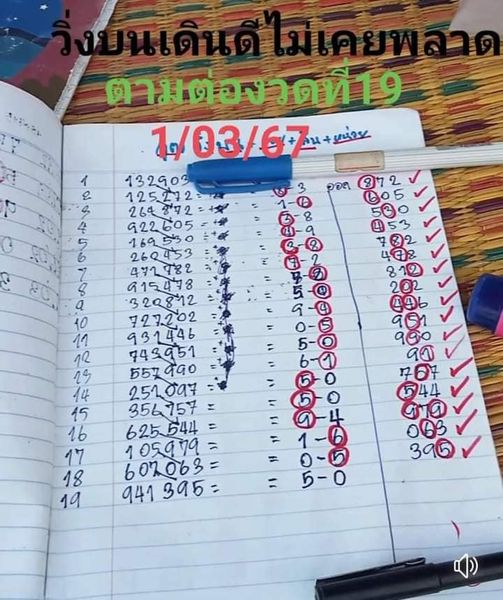 วิ่งบนเดินดีไม่เคยพลาด
ตามต่องวดที่19
1/03/67
+หน่วย
1 132903
2 125272 = 3 ออก 872 ✓
3 264872 = 1-6 605 ✓
4 922605 = 3-8 530 ✓
5 169530 = 4-9 453 ✓
6 260453 = 3-8 782 ✓
7 471782 = 7-2 478 ✓
8 915478 = 812 ✓
9 320812 = 202 ✓
10 727202 = 9-4 446 ✓
11 931446 = 0-5 951 ✓
12 743951 = 5-0 990 ✓
13 557990 = 6-1
14 251097 = 5-0 757 ✓
15 356757 = 5-0 544 ✓
16 625544 = 9-4 979 ✓
17 105979 = = 1-6 063 ✓
18 607063 = = 0-5 395 ✓
19 941395 = = 5-0